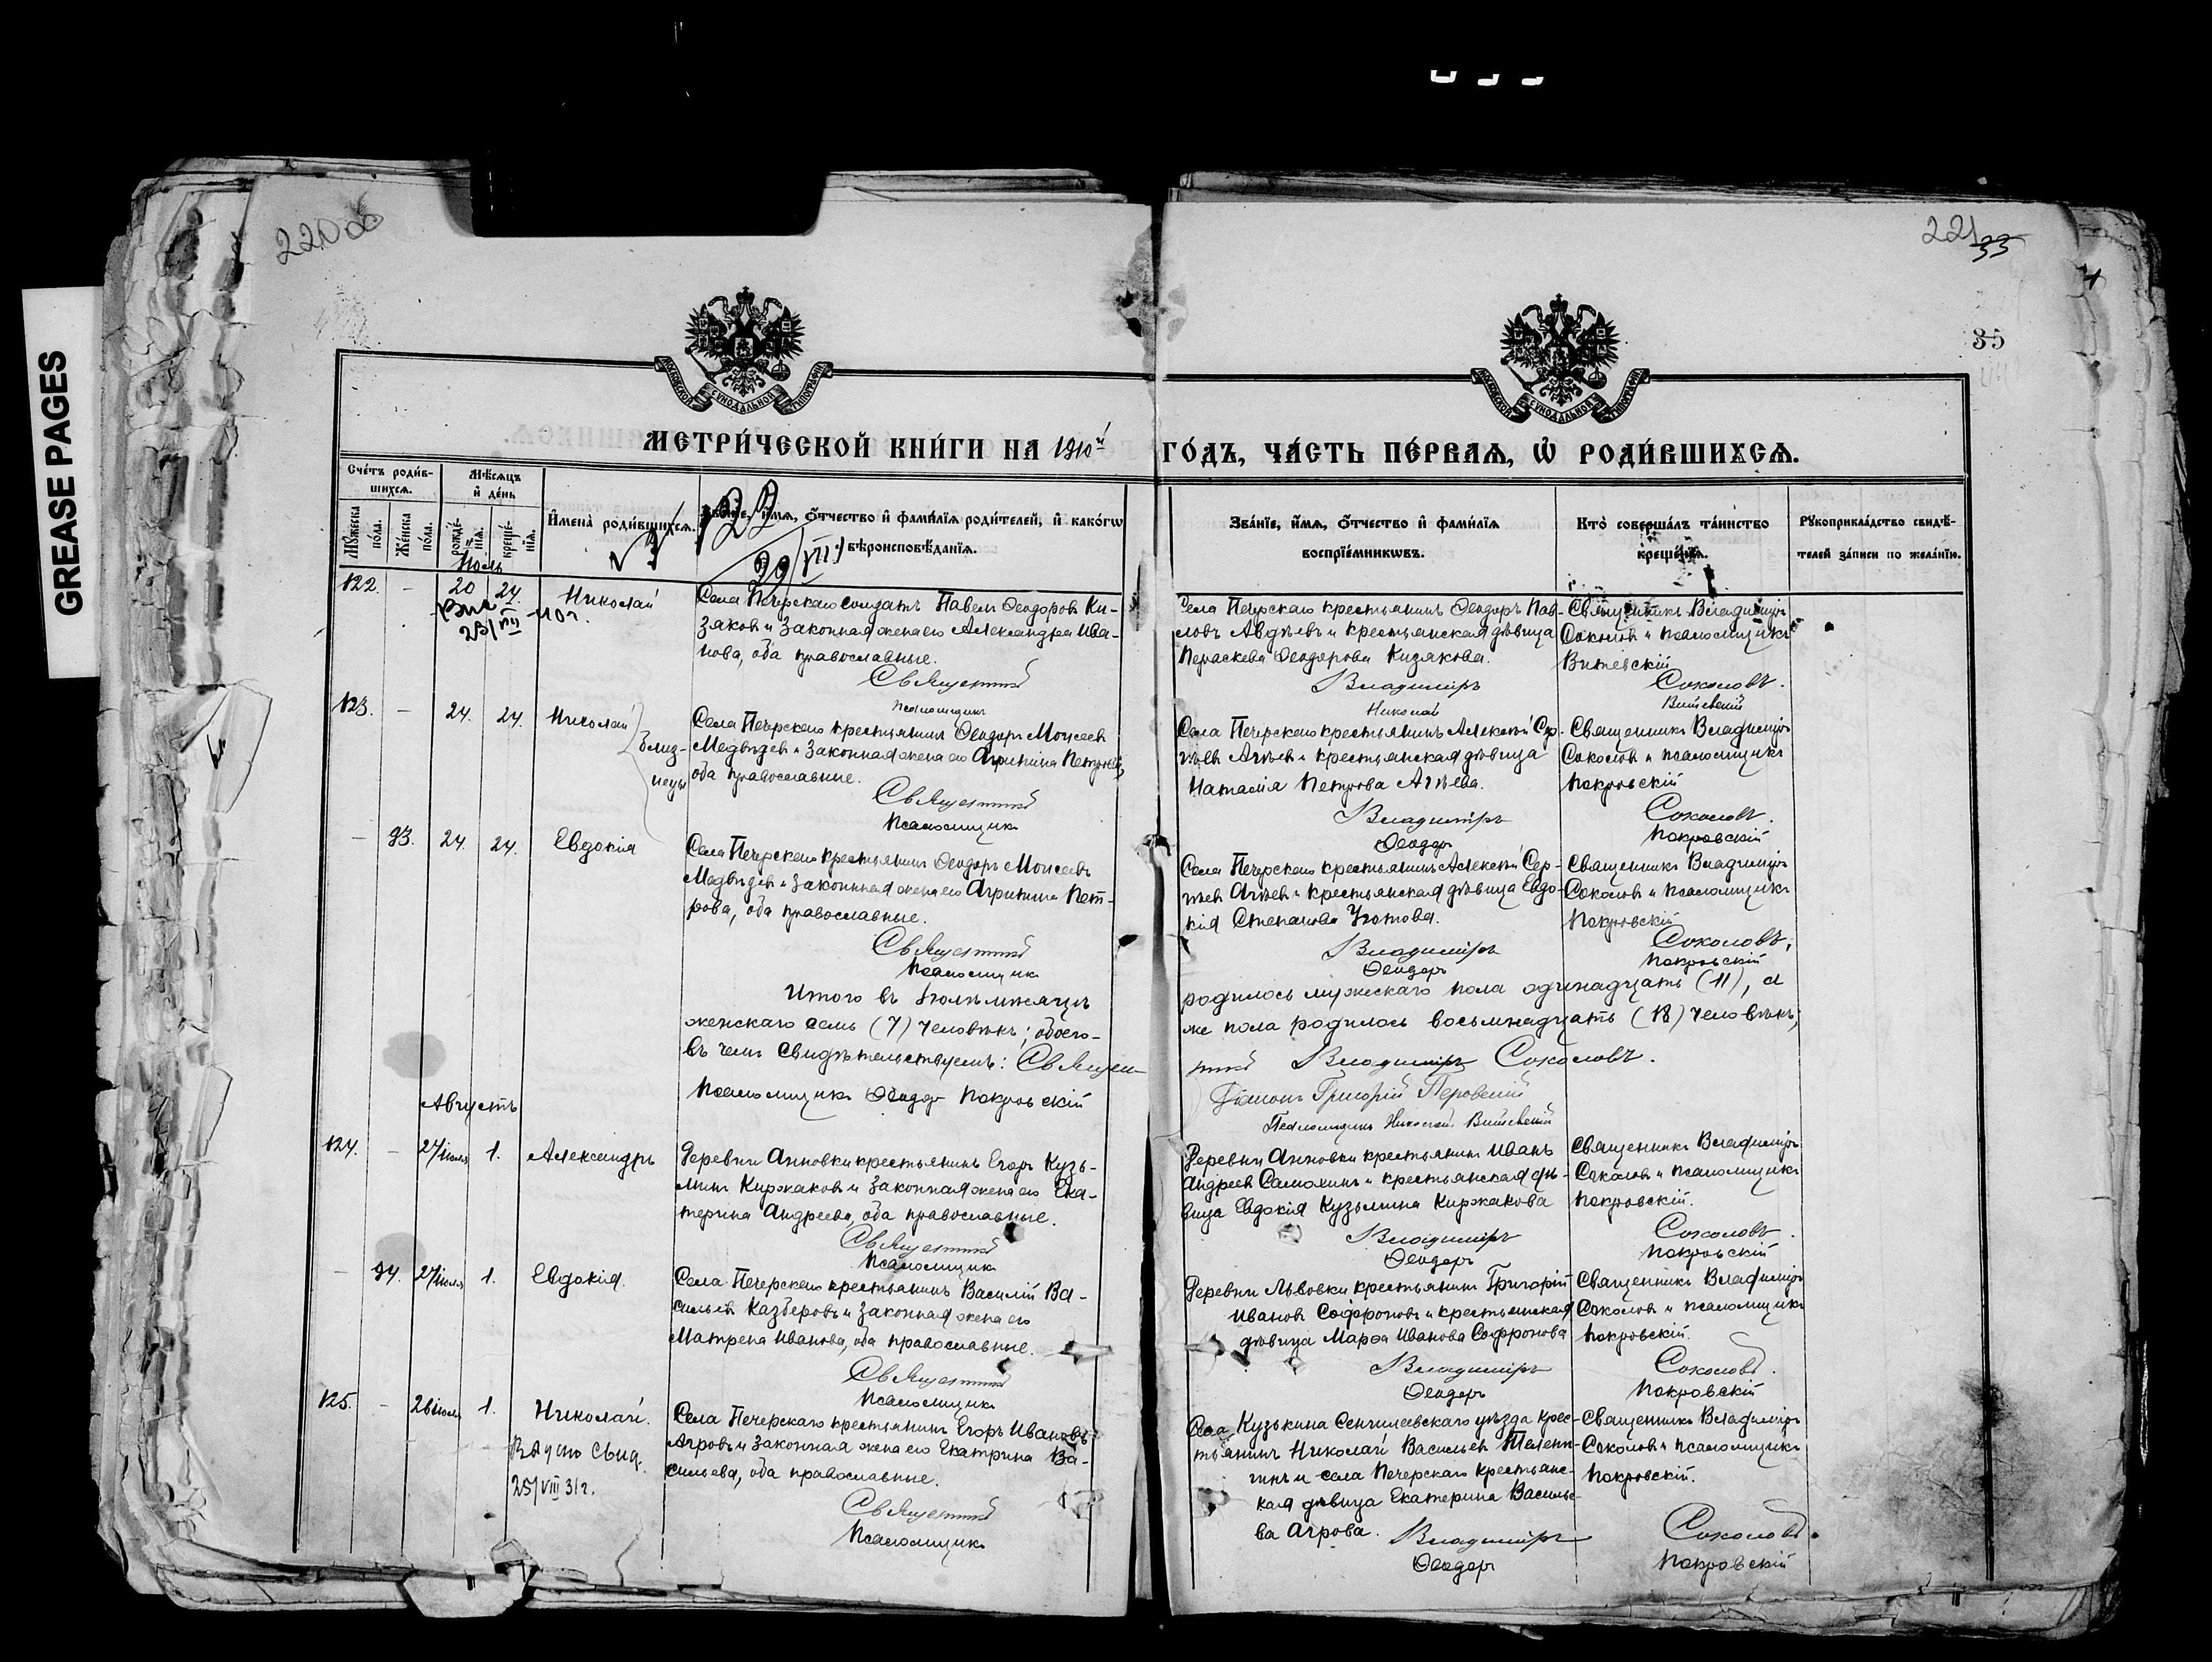 GREASE PAGES
220 об
221
33
35
МОСКОВСКОЙ СѴНОДАЛЬНОЙ ТИПОГРАФІИ
МОСКОВСКОЙ СѴНОДАЛЬНОЙ ТИПОГРАФІИ
МЕТРИ́ЧЕСКОЙ КНИ́ГИ НА 1910й ГО́ДЪ, ЧА́СТЬ ПЕ́РВАѦ, Ѡ҆ РОДИ́ВШИХСѦ.
Сче́тъ роди́в-
шихсѧ.
Мѣ́сѧцъ
и҆ де́нь
Мꙋ́жеска
по́ла.
Же́нска
по́ла.
рожде́-
нїѧ.
креще́-
нїѧ.
И҆мена̀ роди́вшихсѧ.
Зва́нїе, и҆́мѧ, ѻ҆́тчество и҆ фами́лїѧ роди́телей, и҆ како́гѡ
вѣроисповѣ́данїѧ.
Зва́нїе, и҆́мѧ, ѻ҆́тчество и҆ фами́лїѧ
воспрїе́мниковъ.
Кто̀ соверша́лъ та́инство
креще́нїѧ.
Рꙋкоприкла́дство свидѣ́-
телей за́писи по жела́нїю.
Іюль
122. – 20 24. Николай
Села Печерскаго солдатъ Павелъ Ѳеодоровъ Ки-
заковъ и законная жена его Александра Ива-
нова, оба православные.
Священникъ
Псаломщикъ
Села Печерскаго крестьянинъ Ѳеодоръ Пав-
ловъ Авдѣевъ и крестьянская дѣвица
Параскева Ѳеодорова Кизакова.
Владиміръ
Николай
Священникъ Владиміръ
Соколовъ и псаломщикъ
Витевскій
Соколовъ.
Витевскій
123. – 24. 24. Николай
Близ-
нецы
Села Печерскаго крестьянинъ Ѳеодоръ Моисеевъ
Медвѣдевъ и законная жена его Агрипина Петрова,
оба православные.
Священникъ
Псаломщикъ
Села Печерскаго крестьянинъ Алексѣй Сер-
гѣевъ Агѣевъ и крестьянская дѣвица
Наталія Петрова Агѣева.
Владиміръ
Ѳеодоръ
Священникъ Владиміръ
Соколовъ и псаломщикъ
Покровскій
Соколовъ.
Покровскій
– 93. 24. 24. Евдокія
Села Печерскаго крестьянинъ Ѳеодоръ Моисеевъ
Медвѣдевъ и законная жена его Агрипина Пет-
рова, оба православные.
Священникъ
Псаломщикъ
Села Печерскаго крестьянинъ Алексѣй Сер-
гѣевъ Агѣевъ и крестьянская дѣвица Евдо-
кія Степанова
Владиміръ
Ѳеодоръ
Священникъ Владиміръ
Соколовъ и псаломщикъ
Покровскій
Соколовъ.
Покровскій
Итого въ Іюлѣ мѣсяцѣ родилось мужескаго пола одинадцать (11), а
женскаго семь (7) человѣкъ; обоего- же пола родилось восьмнадцать (18) человѣкъ;
въ чемъ свидѣтельствуемъ: Священ- никъ Владиміръ Соколовъ.
Діаконъ Григорій Перовскій
Псаломщикъ Ѳеодоръ Покровскій
Псаломщикъ Николай Витевскій
Августъ
124. – 27 іюля 1. Александръ
Деревни Анновки крестьянинъ Егоръ Кузь-
минъ Киржаковъ и законная жена его Ека-
терина Андреева, оба православные.
Священникъ
Псаломщикъ
Деревни Анновки крестьянинъ Иванъ
Андреевъ Самохинъ и крестьянская дѣ-
вица Евдокія Кузьмина Киржакова
Владиміръ
Ѳеодоръ
Священникъ Владиміръ
Соколовъ и псаломщикъ
Покровскій.
Соколовъ.
Покровскій
– 94. 27 іюля 1. Евдокія.
Села Печерскаго крестьянинъ Василій Ва-
сильевъ Казберовъ и законная жена его
Матрена Иванова, оба православные.
Священникъ
Псаломщикъ
Деревни Львовки крестьянинъ Григорій
Ивановъ Софроновъ и крестьянская
дѣвица Марѳа Иванова Софронова
Владиміръ
Ѳеодоръ
Священникъ Владиміръ
Соколовъ и псаломщикъ
Покровскій.
Соколовъ.
Покровскій
125. – 26 іюля 1. Николай.
Взято свид.
25/VIII 31 г.
Села Печерскаго крестьянинъ Егоръ Ивановъ
Агровъ и законная жена его Екатрина Ва-
сильева, оба православные.
Священникъ
Псаломщикъ
Села Кузькина Сенгилеевскаго уѣзда крес-
тьянинъ Николай Васильевъ Телен-
гинъ и села Печерскаго крестьянс-
кая дѣвица Екатерина Василье-
ва Агрова.
Владиміръ
Ѳеодоръ
Священникъ Владиміръ
Соколовъ и псаломщикъ
Покровскій.
Соколовъ.
Покровскій